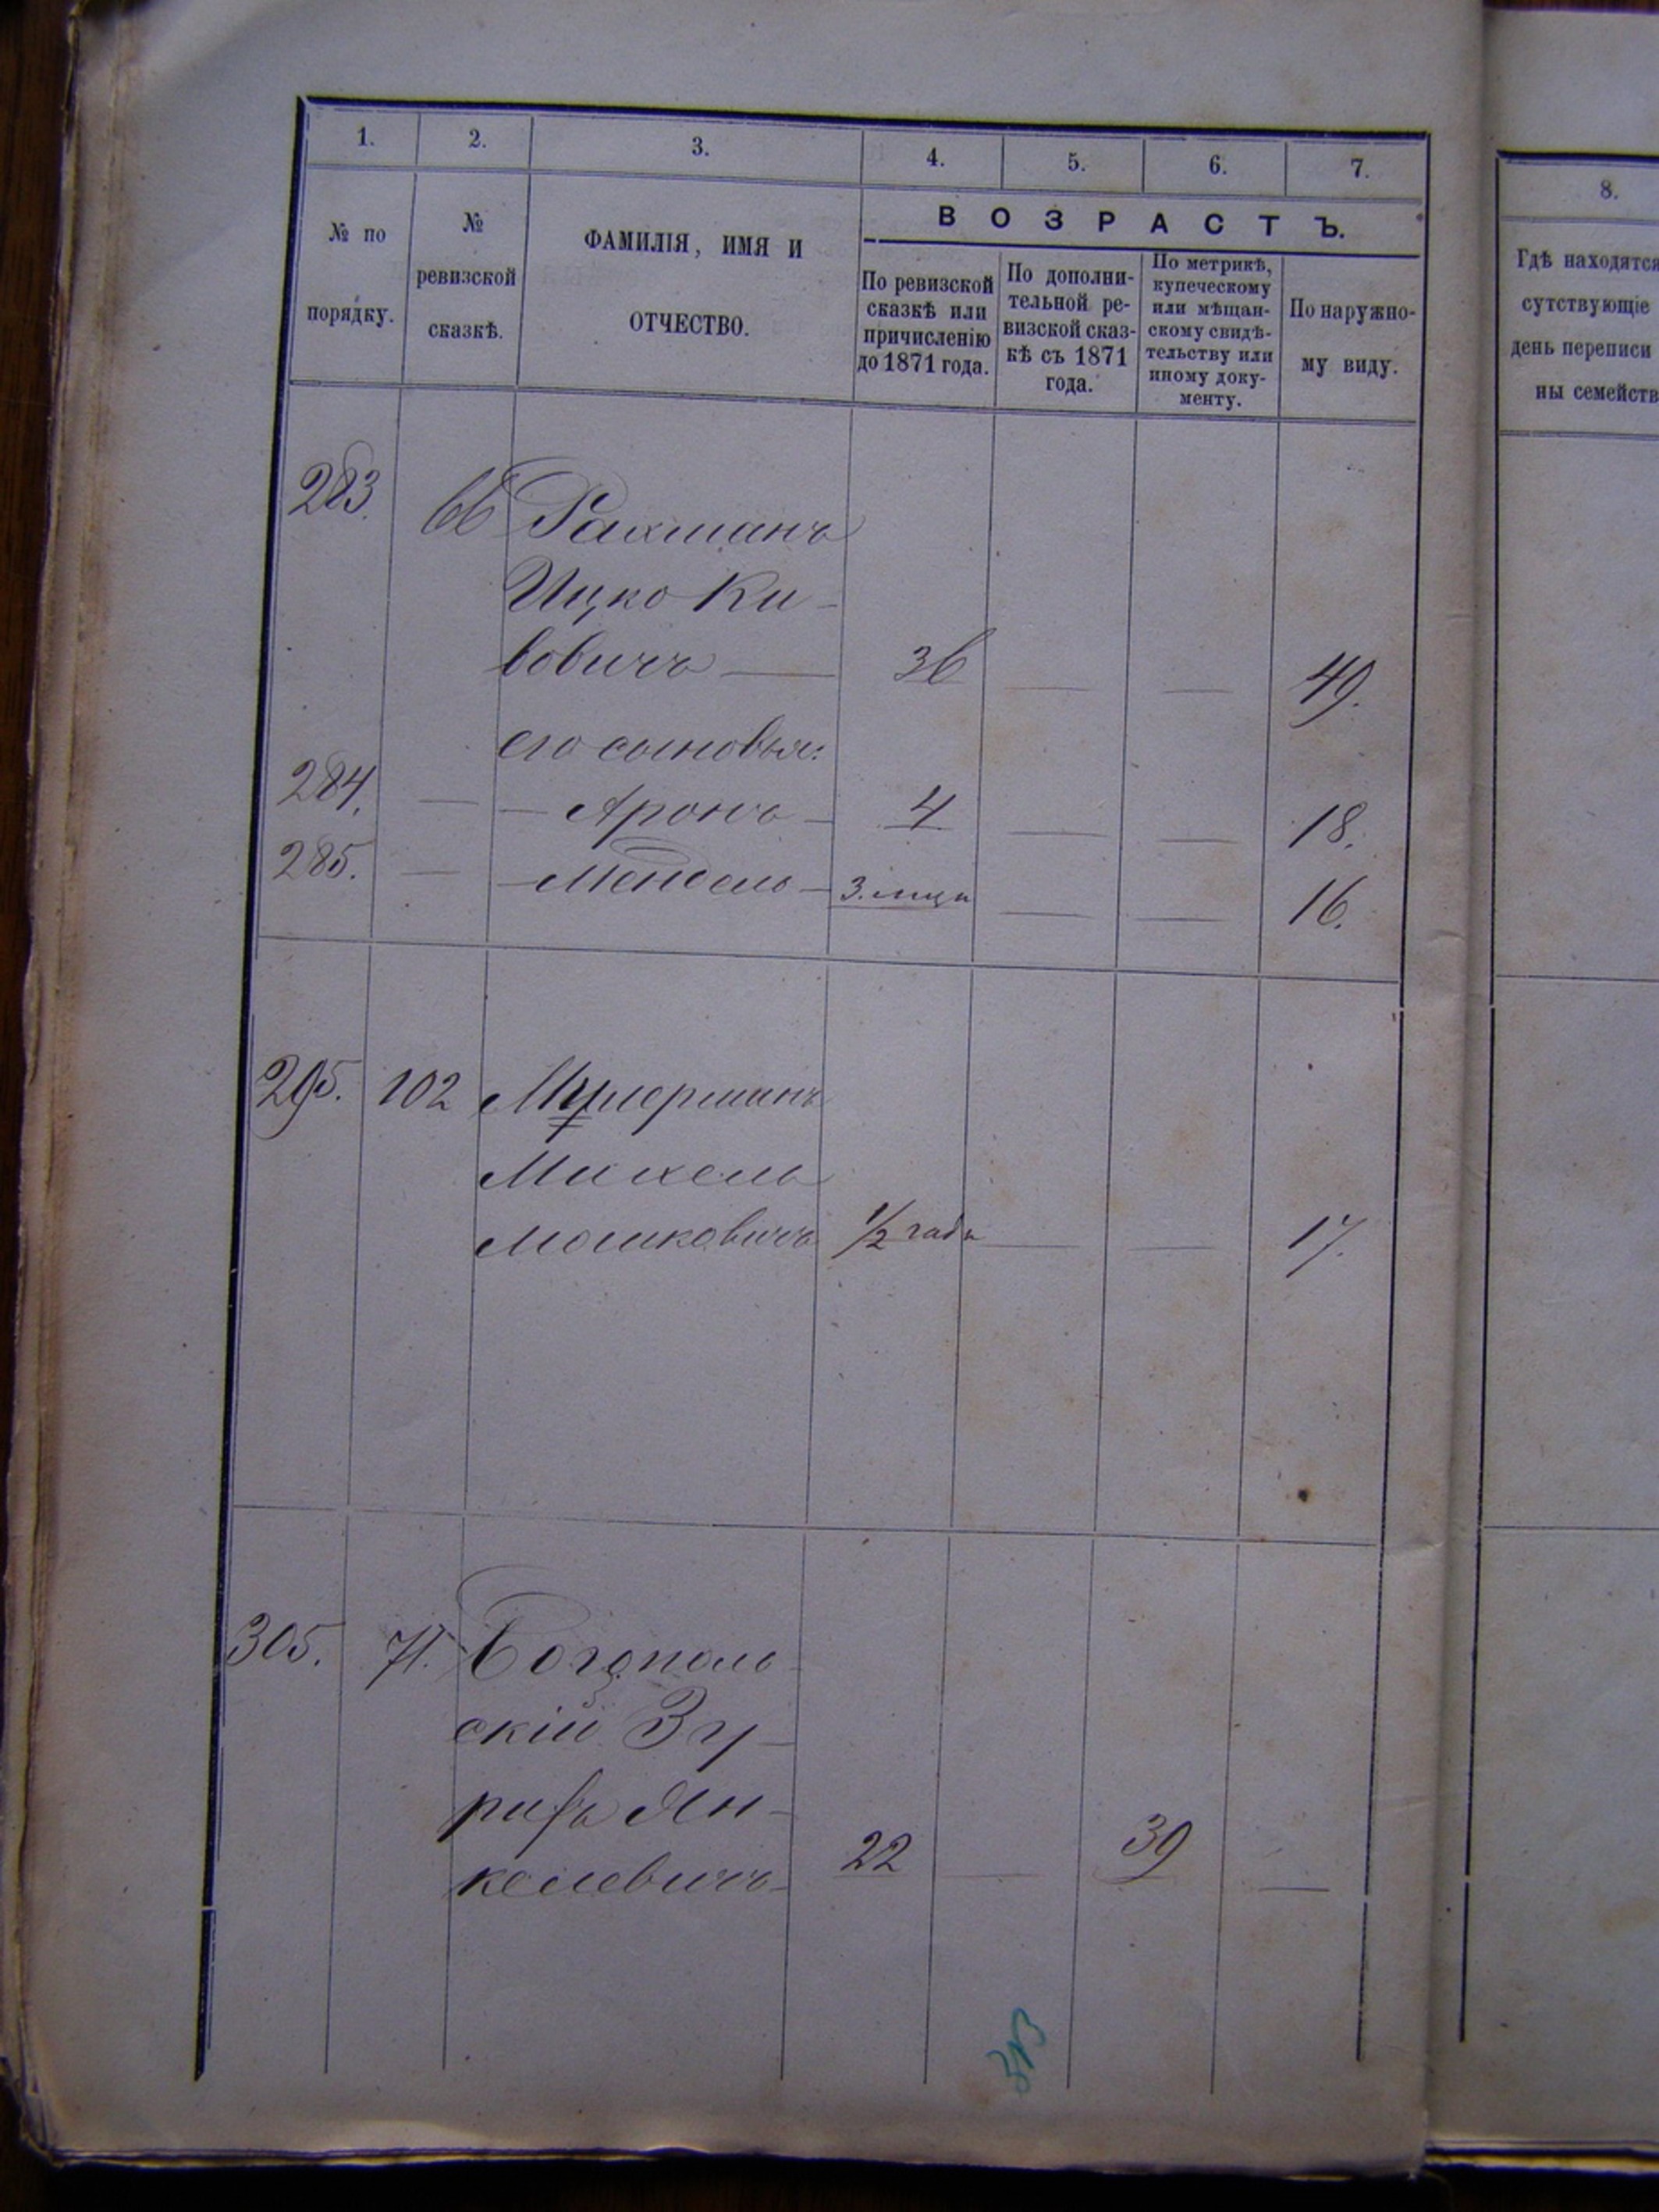 1. 2. 3. 4. 5. 6. 7.
№ по порядку.
№ ревизской сказкѣ.
ФАМИЛІЯ, ИМЯ И
ОТЧЕСТВО.
ВОЗРАСТЪ.
По ревизской
сказкѣ или
причисленію
до 1871 года.
По дополни-
тельной ре-
визской сказ-
кѣ съ 1871
года.
По метрикѣ,
купеческому
или мѣщан-
скому свидѣ-
тельству или
иному доку-
менту.
По наружно-
му виду.
283. 66 Рахманъ
Ицко Ки-
вовичъ — 36 — — 49.
его сыновья:
284. — — Аронъ — 4 — — 18.
285. — — Мендель — 3. мца — — 16.
295. 102
Михель
Мошковичъ 1/2 года — — 17.
305. 71. Богополь-
скій Зу-
рифъ Ян-
келевичъ 22 — 39 —
8.
Гдѣ находятся
сутствующіе
день переписи
ны семейств